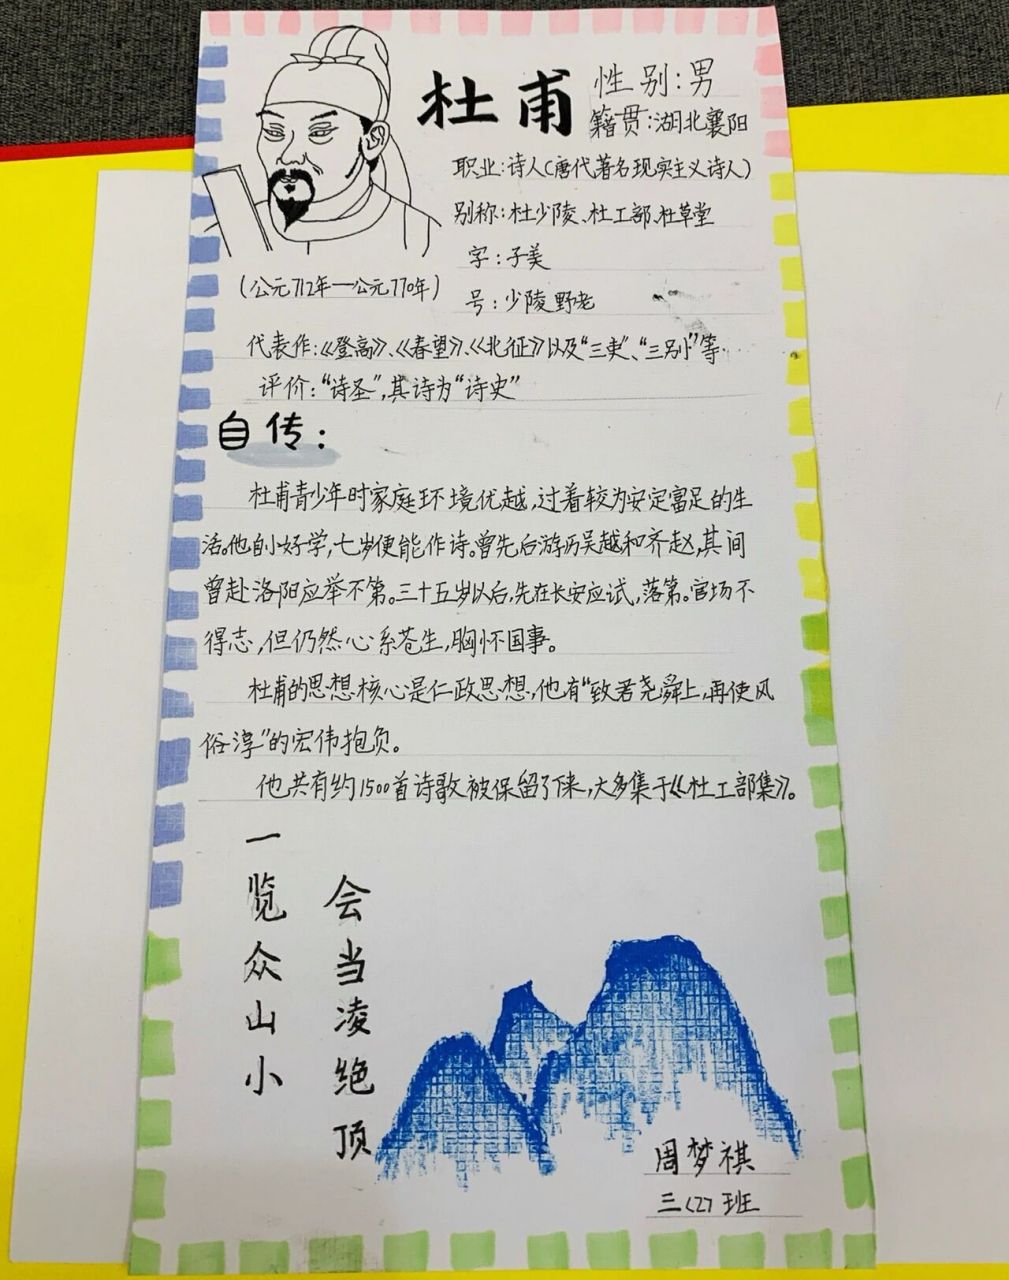 杜甫
性别:男
籍贯:湖北襄阳
职业:诗人(唐代著名现实主义诗人)
别称:杜少陵、杜工部、杜草堂
字:子美
(公元712年—公元770年)
号:少陵野老
代表作:《登高》、《春望》、《北征》以及“三吏”、“三别”等
评价:“诗圣”,其诗为“诗史”
自传:
杜甫青少年时家庭环境优越,过着较为安定富足的生
活。他自小好学,七岁便能作诗。曾先后游历吴越和齐赵,其间
曾赴洛阳应举不第。三十五岁以后,先在长安应试,落第。官场不
得志,但仍然心系苍生,胸怀国事。
杜甫的思想核心是仁政思想,他有“致君尧舜上,再使风
俗淳”的宏伟抱负。
他共有约1500首诗歌被保留了下来,大多集于《杜工部集》。
会当凌绝顶
一览众山小
周梦祺
三(2)班